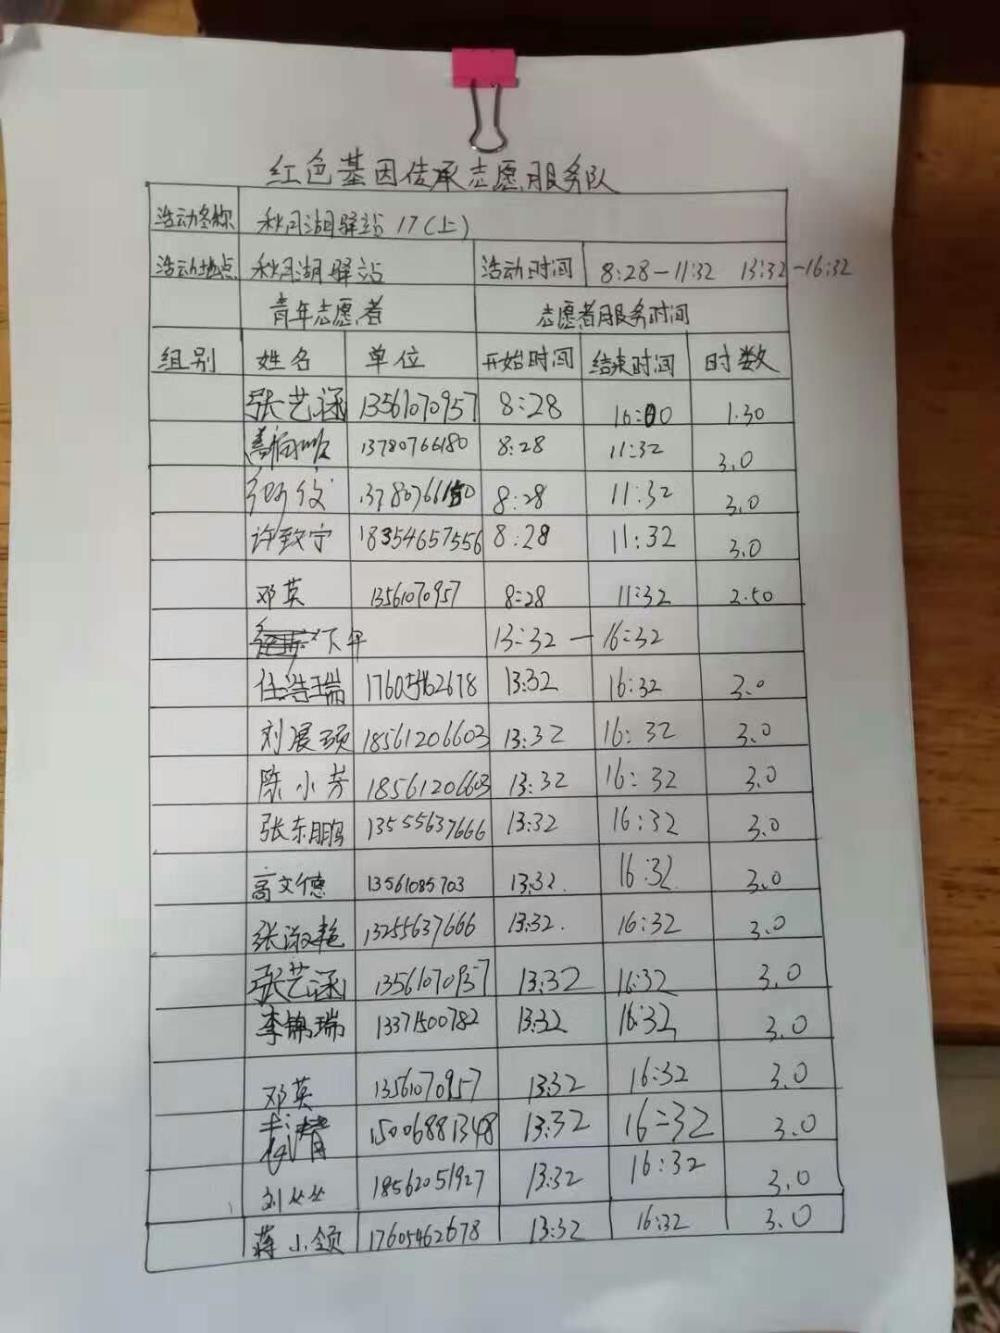 红色基因传承志愿服务队
活动名称 秋月湖驿站 17(上)
活动地点 秋月湖驿站 活动时间 8:28-11:32 13:32-16:32
青年志愿者 志愿者服务时间
组别 姓名 单位 开始时间 结束时间 时数
张艺涵 13561070957 8:28 1.30
13780766180 8:28 11:32 3.0
8:28 11:32 3.0
许致宁 18354657556 8:28 11:32 3.0
邓英 13561070957 8:28 11:32 2.50
下午 13:32-16:32
任浩瑞 17605462678 13:32 16:32 3.0
刘展颐 18561206603 13:32 16:32 3.0
陈小芳 18561206603 13:32 16:32 3.0
张东鹏 13555637666 13:32 16:32 3.0
高文德 13561085703 13:32. 16:32 3.0
张淑艳 13255637666 13:32. 16:32 3.0
张艺涵 13561070957 13:32 16:32 3.0
李锦瑞 13371500782 13:32 16:32 3.0
邓英 13561070957 13:32 16:32 3.0
15006881348 13:32 16:32 3.0
刘丛丛 18562051927 13:32 16:32 3.0
蒋小领 17605462678 13:32 16:32 3.0